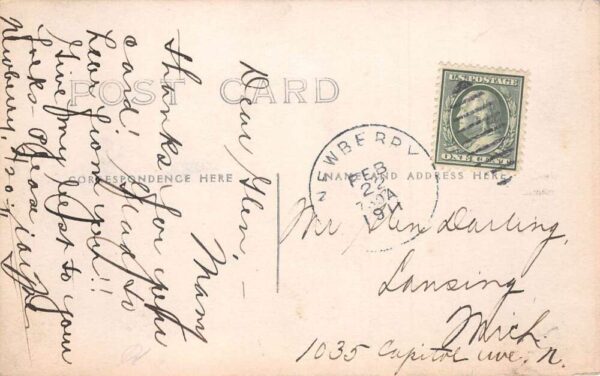 POST CARD
CORRESPONDENCE HERE
NAME AND ADDRESS HERE
U.S. POSTAGE
ONE CENT
NEWBERRY
FEB
22
A
1911
Dear Glen, –
Many
thanks for
card! Glad to
hear from you!!
Give my best to your
folks –
Newberry,
Mr. Glen Darling,
Lansing
Mich.
1035 Capitol Ave. N.